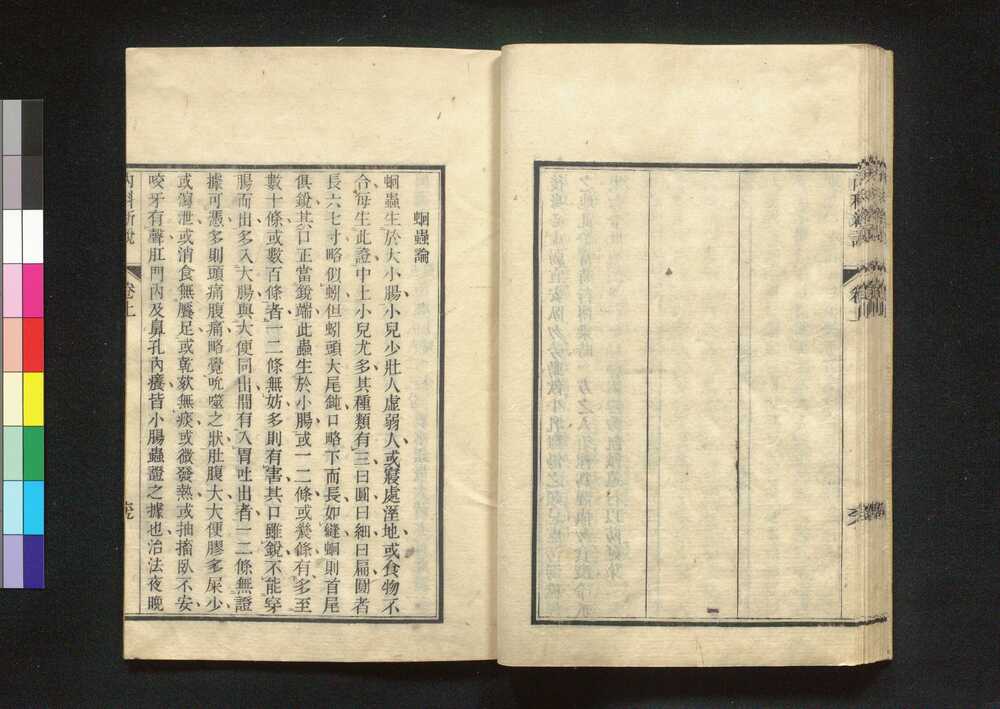 內科新說
卷上
蛔蟲論
蛔蟲生於大小腸小兒少壯人虛弱人或寢處溼地或食物不
合每生此證中土小兒尤多其種類有三曰圓曰細曰扁圓者
長六七寸略似蚓但蚓頭大尾鈍口略下而長如縫蛔則首尾
俱銳其口正當銳端此蟲生於小腸或一二條或幾條有多至
數十條或數百條者一二條無妨多則有害其口雖銳不能穿
腸而出多入大腸與大便同出間有入胃吐出者一二條無證
據可憑多則頭痛腹痛略覺吮噬之狀肚腹大大便膠多屎少
或瀉泄或消食無饜足或乾欬無痰或微發熱或抽搐臥不安
咬牙有聲肛門內及鼻孔內癢皆小腸蟲證之據也治法夜晚
內科新說
卷上